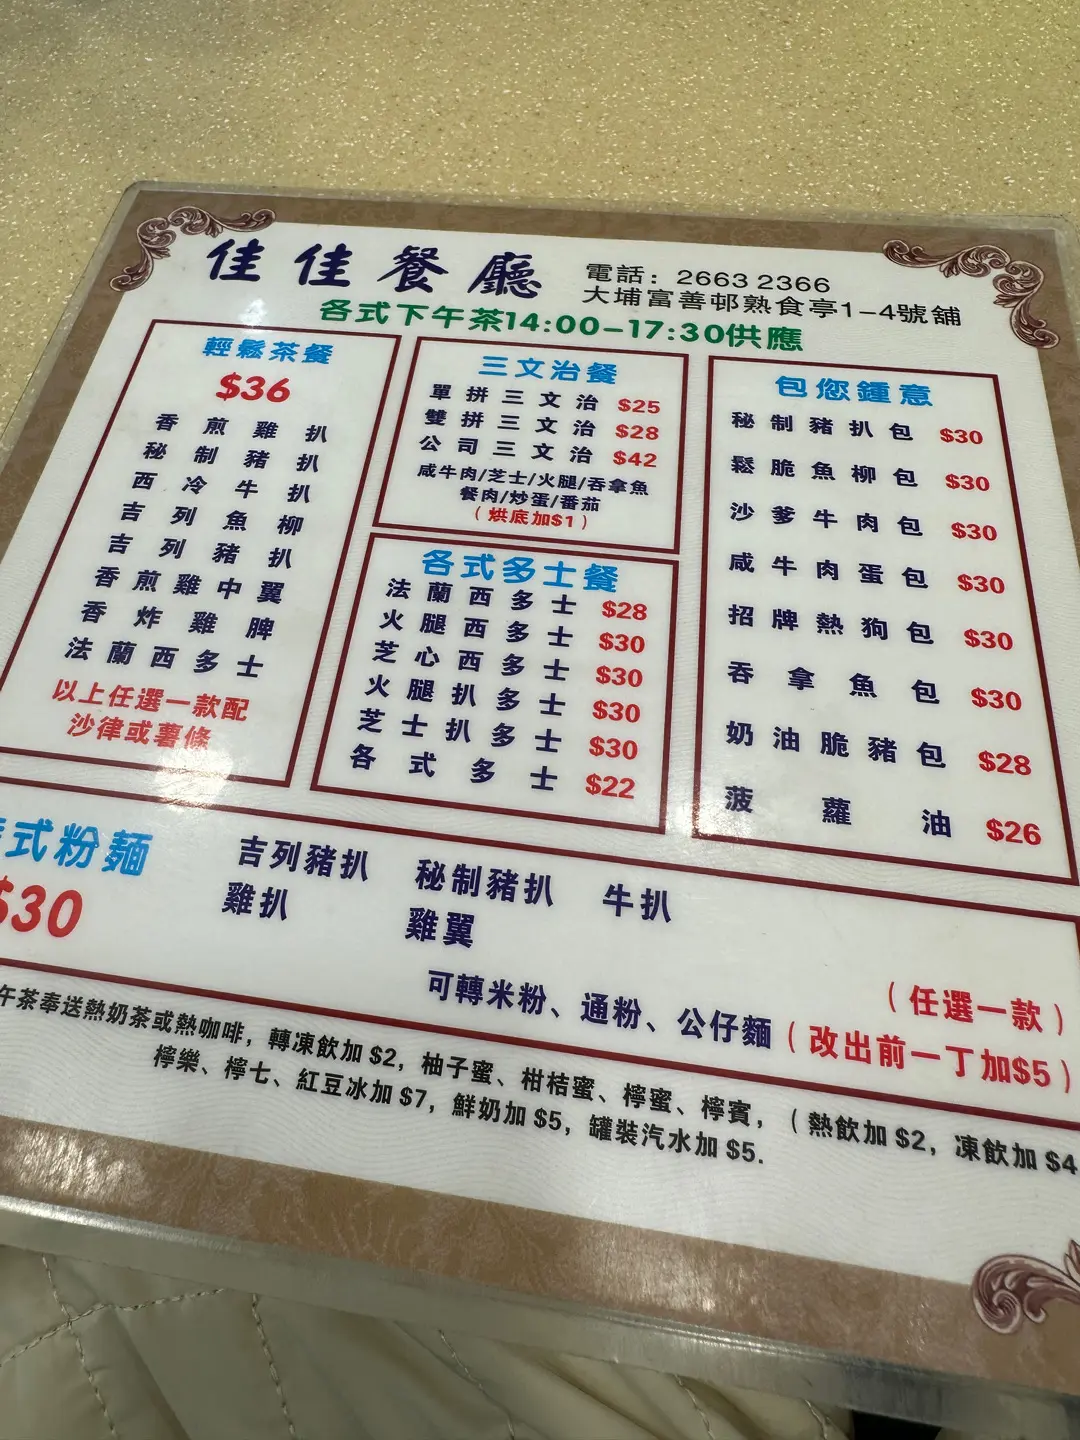 佳佳餐廳
電話：2663 2366
大埔富善邨熟食亭1-4號舖
各式下午茶14:00-17:30供應
輕鬆茶餐
$36
香煎雞扒
秘制豬扒
西冷牛扒
吉列魚柳
吉列豬扒
香煎雞中翼
香炸雞脾
法蘭西多士
以上任選一款配
沙律或薯條
三文治餐
單拼三文治 $25
雙拼三文治 $28
公司三文治 $42
咸牛肉/芝士/火腿/吞拿魚
餐肉/炒蛋/番茄
（烘底加$1）
各式多士餐
法蘭西多士 $28
火腿西多士 $30
芝心西多士 $30
火腿扒多士 $30
芝士扒多士 $30
各式多士 $22
包您鍾意
秘制豬扒包 $30
鬆脆魚柳包 $30
沙爹牛肉包 $30
咸牛肉蛋包 $30
招牌熱狗包 $30
吞拿魚包 $30
奶油脆豬包 $28
菠蘿油 $26
式粉麵
$30
吉列豬扒 秘制豬扒 牛扒
雞扒 雞翼
（任選一款）
可轉米粉、通粉、公仔麵（改出前一丁加$5）
午茶奉送熱奶茶或熱咖啡，轉凍飲加 $2，柚子蜜、柑桔蜜、檸蜜、檸賓，（熱飲加 $2，凍飲加 $4
檸樂、檸七、紅豆冰加 $7，鮮奶加 $5，罐裝汽水加 $5.